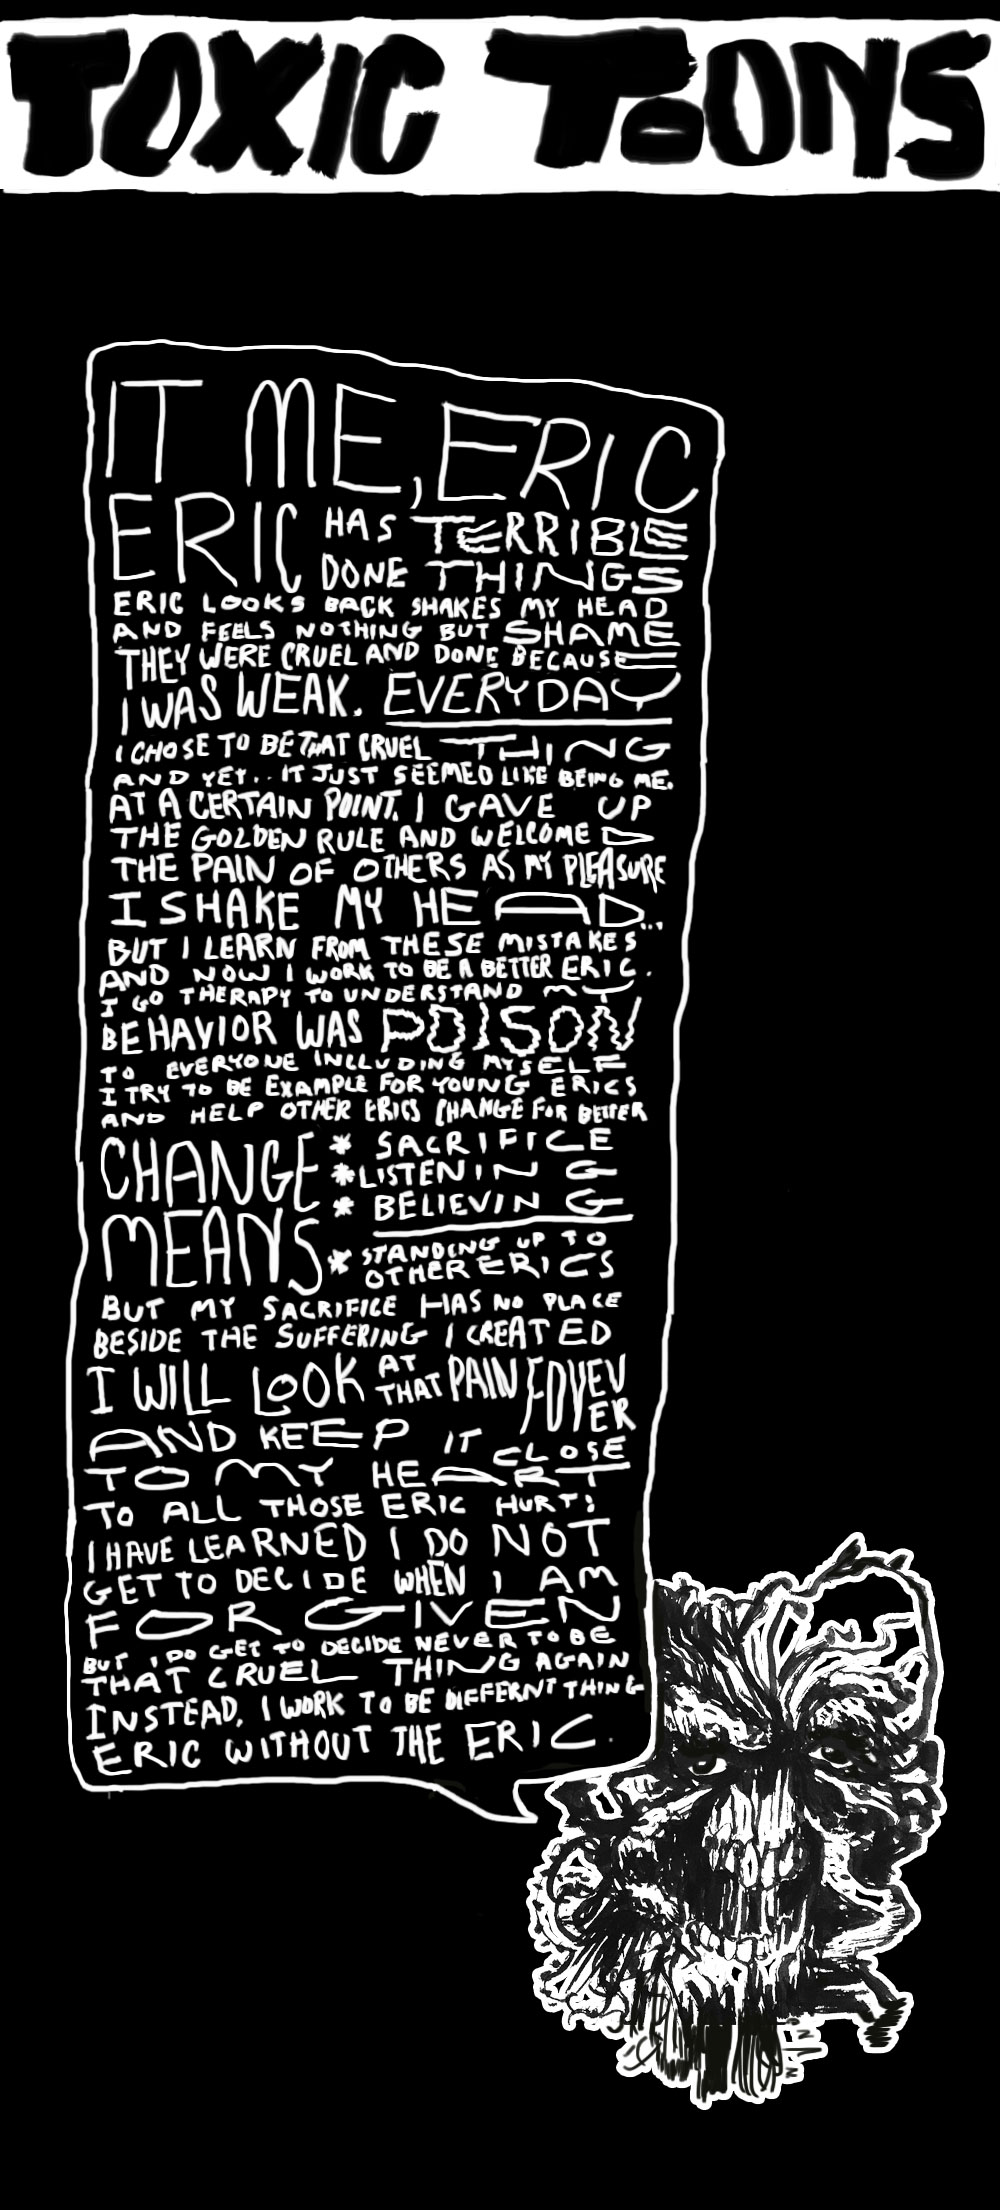 TOXIC TOONS
IT ME, ERIC
ERIC HAS TERRIBLE
DONE THINGS
ERIC LOOKS BACK SHAKES MY HEAD
AND FEELS NOTHING BUT SHAME
THEY WERE CRUEL AND DONE BECAUSE
I WAS WEAK. EVERYDAY
I CHOSE TO BE THAT CRUEL THING
AND YET.. IT JUST SEEMED LIKE BEING ME.
AT A CERTAIN POINT. I GAVE UP
THE GOLDEN RULE AND WELCOMED
THE PAIN OF OTHERS AS MY PLEASURE
I SHAKE MY HEAD...
BUT I LEARN FROM THESE MISTAKES
AND NOW I WORK TO BE A BETTER ERIC.
I GO THERAPY TO UNDERSTAND MY
BEHAVIOR WAS POISON
TO EVERYONE INCLUDING MYSELF
I TRY TO BE EXAMPLE FOR YOUNG ERICS
AND HELP OTHER ERICS CHANGE FOR BETTER
CHANGE MEANS
* SACRIFICE
* LISTENING
* BELIEVING
* STANDING UP TO
OTHER ERICS
BUT MY SACRIFICE HAS NO PLACE
BESIDE THE SUFFERING I CREATED
I WILL LOOK AT THAT PAIN FOVEVER
AND KEEP IT CLOSE
TO MY HEART
TO ALL THOSE ERIC HURT:
I HAVE LEARNED I DO NOT
GET TO DECIDE WHEN I AM
FORGIVEN
BUT I DO GET TO DECIDE NEVER TO BE
THAT CRUEL THING AGAIN
INSTEAD, I WORK TO BE DIFFERNT THING
ERIC WITHOUT THE ERIC.